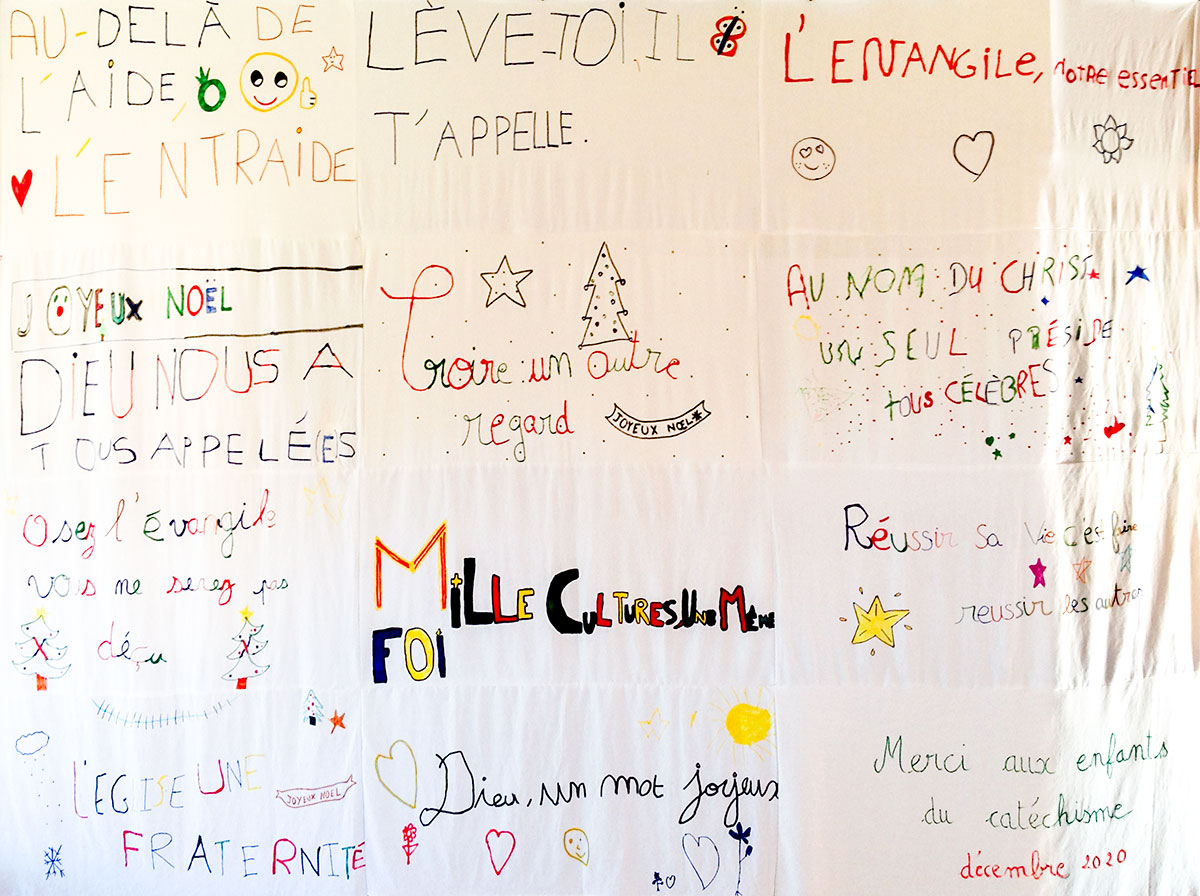 AU-DELÀ DE
L'AIDE,
L'ENTRAIDE
LÈVE-TOI, IL
T'APPELLE.
L'ENANGILE, NOTRE ESSENTIEL
JOYEUX NOËL
DIEU NOUS A
TOUS APPELÉ(E)S
Croire : un autre
regard
JOYEUX NOEL
AU NOM DU CHRIST
UN SEUL PRÉSIDE
tous CÉLÈBRES
Osez l'évangile
vous ne serez pas
déçu
MILLE CULTURES, UNE MÊME
FOI
Réussir sa vie c'est faire
reussir les autres
L'EGISE UNE
JOYEUX NOEL
FRATERNITÉ
Dieu, un mot joyeux
Merci aux enfants
du catéchisme
décembre 2020